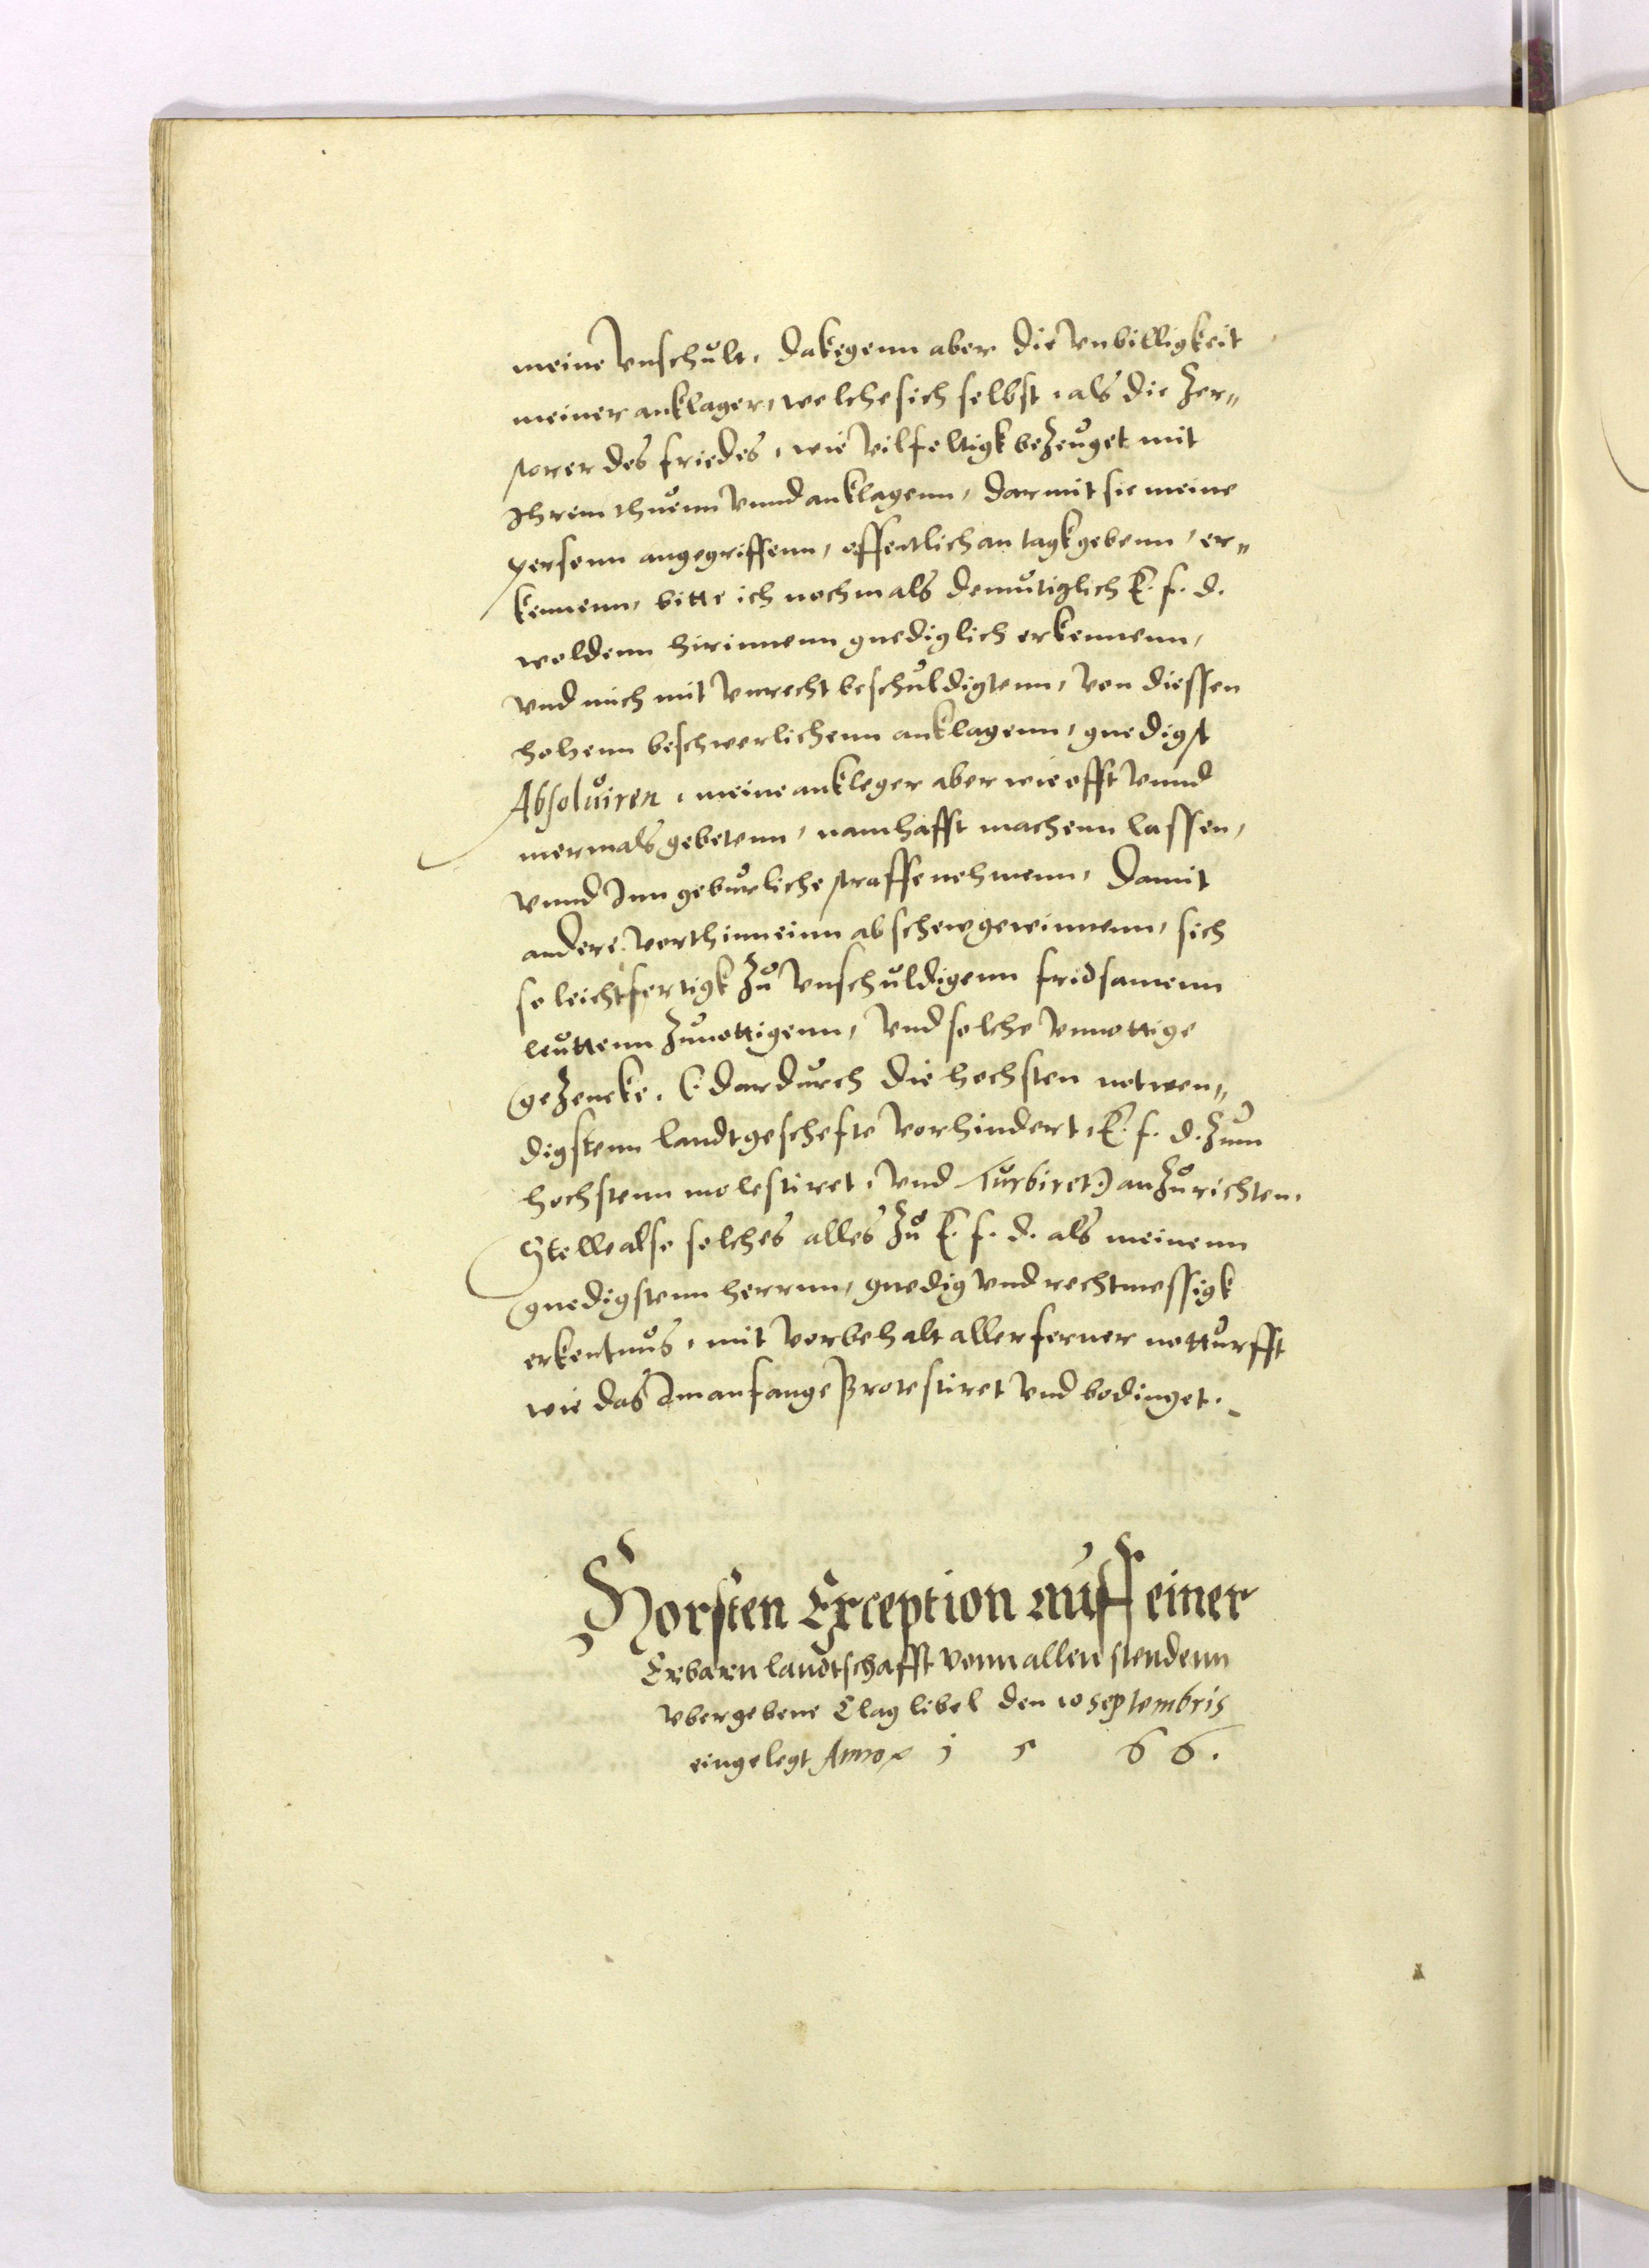 meine Vnschult, dakegenn aber die Vnbilligkeit
meiner anklager, welche sich selbst, als die Zer„
storer des friedes, wie Vilfeltigk beZeuget mit
Ihrem thuenn Vnnd anklagenn, darmit sie meine
personn angegriffenn, offentlich an tagk gebenn, er„
kennenn, bitte ich nochmals demutiglich E. f. d.
woldenn hirinnenn gnediglich erkennenn,
Vnd mich mit Vnrecht beschuldigtenn, Von diessen
hohenn beschwerlichenn anklagenn, gnedigst
Absoluiren, meine ankleger aber wie offt Vnnd
mermals gebetenn, namhafft machenn lassen,
Vnnd Inn geburliche straffe nehmenn, damit
andere Vorthinn einn abschew gewinnenn, sich
so leichtfertigk Zu Vnschuldigenn fridsamenn
leuttenn Zunottigenn, Vnd solche Vnnottige
geZencke, (: dardurch die hochsten notwen„
digstenn landtgeschefte Vorhindert, E. f. d. Zum
hochstenn molestiret, Vnd Turbiret :) anZurichten,
Stelle also solches alles Zu E. f. d. als meinenn
gnedigstenn herrnn, gnedig Vnd rechtmessigk
erkentnus, mit Vorbehalt aller ferner notturfft
wie das Im anfange Protestiret Vnd bedinget.
Horsten Exception auff einer
Erbarn landtschafft vonn allen stendenn
vbergebene Clag libel den 10 septembris
eingelegt Anno 1 5 66.